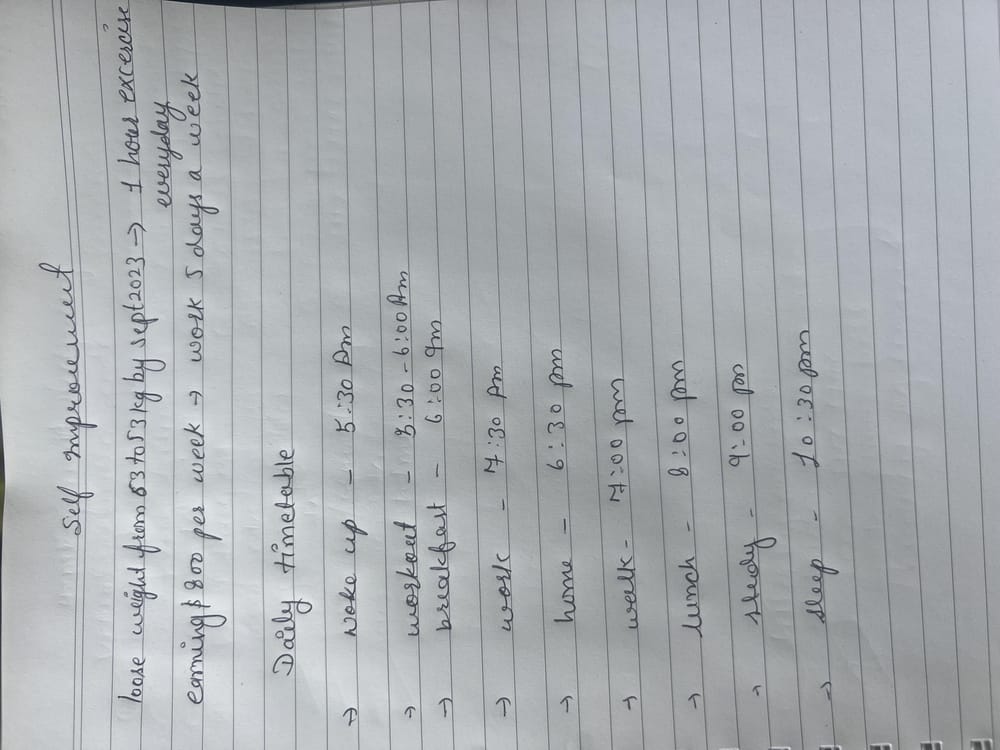 Self Improvement
loose weight from 63 to 53 kg by sept 2023 → 1 hour excercise
everyday
earning $ 800 per week → work 5 days a week
Daily timetable
→ woke up - 5:30 Am
→ workout - 5:30 - 6:00 Am
→ breakfast - 6:00 am
→ work - 7:30 Am
→ home - 6:30 pm
→ walk - 7:00 pm
→ lunch - 8:00 pm
→ study - 9:00 pm
→ sleep - 10:30 pm